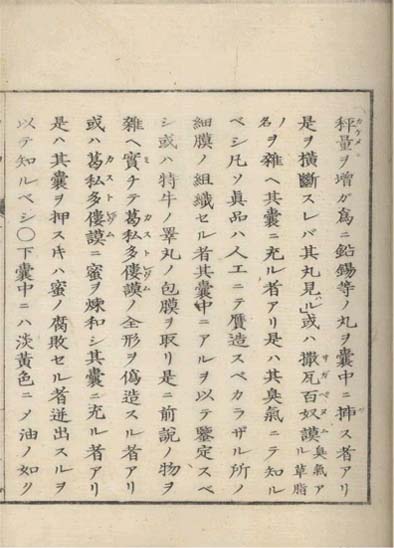 秤量ヲ增ガ爲ニ鉛錫等ノ丸ヲ囊中ニ挿ス者アリ
是ヲ橫斷スレバ其丸見ル或ハ撒瓦百奴謨臭氣アル草脂
ノ名ヲ雜ヘ其囊ニ充ル者アリ是ハ其臭氣ニテ知ル
ベシ凡ソ眞品ハ人工ニテ贋造スベカラザル所ノ
細膜ノ組織セル者其囊中ニアルヲ以テ鑒定スベ
シ或ハ特牛ノ睪丸ノ包膜ヲ取リ是ニ前說ノ物ヲ
雜ヘ實チテ葛私多僂謨ノ全形ヲ僞造スル者アリ
或ハ葛私多僂謨ニ蜜ヲ煉和シ其囊ニ充ル者アリ
是ハ其囊ヲ押ス𪜈ハ蜜ノ腐敗セル者迸出スルヲ
以テ知ルベシ〇下囊中ニハ淡黃色ニ〆油ノ如ク